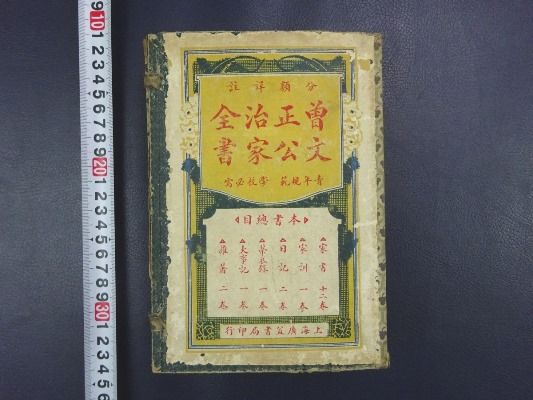 分類詳註
曾文
正公
治家
全書
青年規範 學校必需
本書總目
家書十二卷
家訓一卷
日記二卷
榮哀錄一卷
大事記一卷
雜著二卷
上海廣益書局印行
9 10 1 2 3 4 5 6 7 8 9 20 1 2 3 4 5 6 7 8 9 30 1 2 3 4